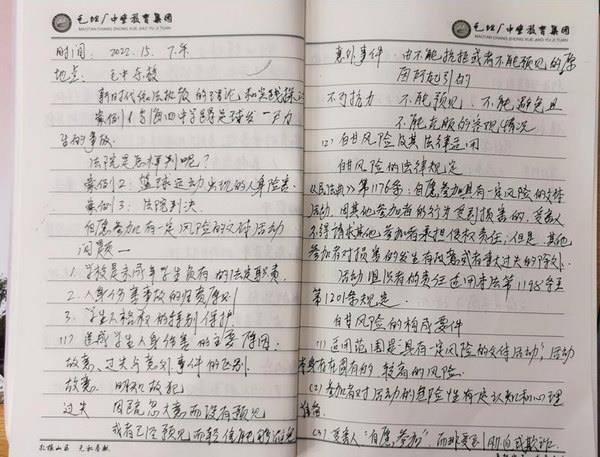 毛坦厂中学教育集团
MAOTAN CHANG ZHONG XUE JIAO YU JI TUAN
时间: 2022.15. 下午
地点:
新时代 的理论和实践探
案例1
法院是怎样判呢?
案例2: 篮球运动 出现的人身 害
案例3: 法院判决
自愿参加有一定风险的文体活动
问题一
1. 学校是 未成年学生 有的法定职责
2. 人身伤害事故的归责原则
3. 学生人格权的特别保护
(1) 造成学生人身伤害的主要原因:
故意、过失与意外事件的区别
故意: 明知故犯
过失 因疏忽大意而没有预见
或者已经预见而轻信能够避免
毛坦厂中学教育集团
MAOTAN CHANG ZHONG XUE JIAO YU JI TUAN
意外事件: 由不能抗拒或者不能预见的原
因所引起的
不可抗力 不能预见、不能避免且
不能克服的客观情况
(2) 自甘风险及其法律适用
自甘风险的法律规定
《民法典》第1176条: 自愿参加具有一定风险的文体
活动, 因其他参加者的行为受到损害的, 受害人
不得请求其他参加者承担侵权责任; 但是, 其他
参加者对损害的发生有故意或者重大过失的除外.
活动组织者的责任适用本法第1198条至
第1201条规定.
自甘风险的构成要件
(1) 适用范围是“具有一定风险的文体活动”, 活动
本身存在固有的 较高的风险.
(2) 参加者对活动的危险性有足够认知和心理
准备.
(3) 受害人“自愿参加”而非受到 胁迫或欺诈.